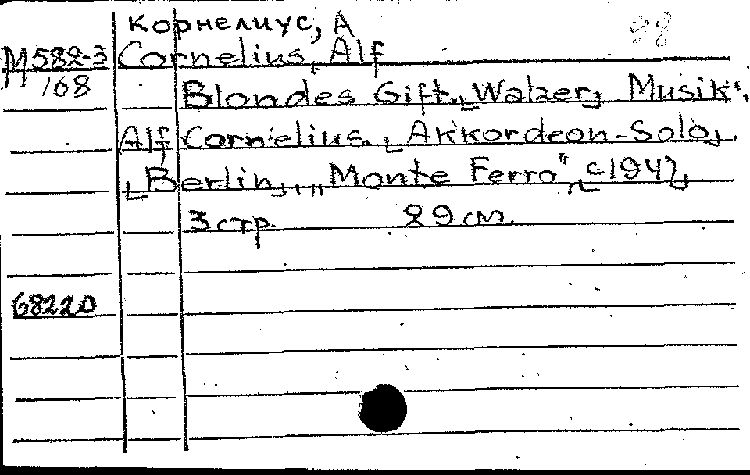 Корнелиус, А
88
М582-3 Cornelius, Alf
168
Blondes Gift. Walzer, Musik:
Alf Cornelius. Akkordeon-Solo.
Berlin, "Monte Ferro", c1947,
3 стр. 29 см.
68220